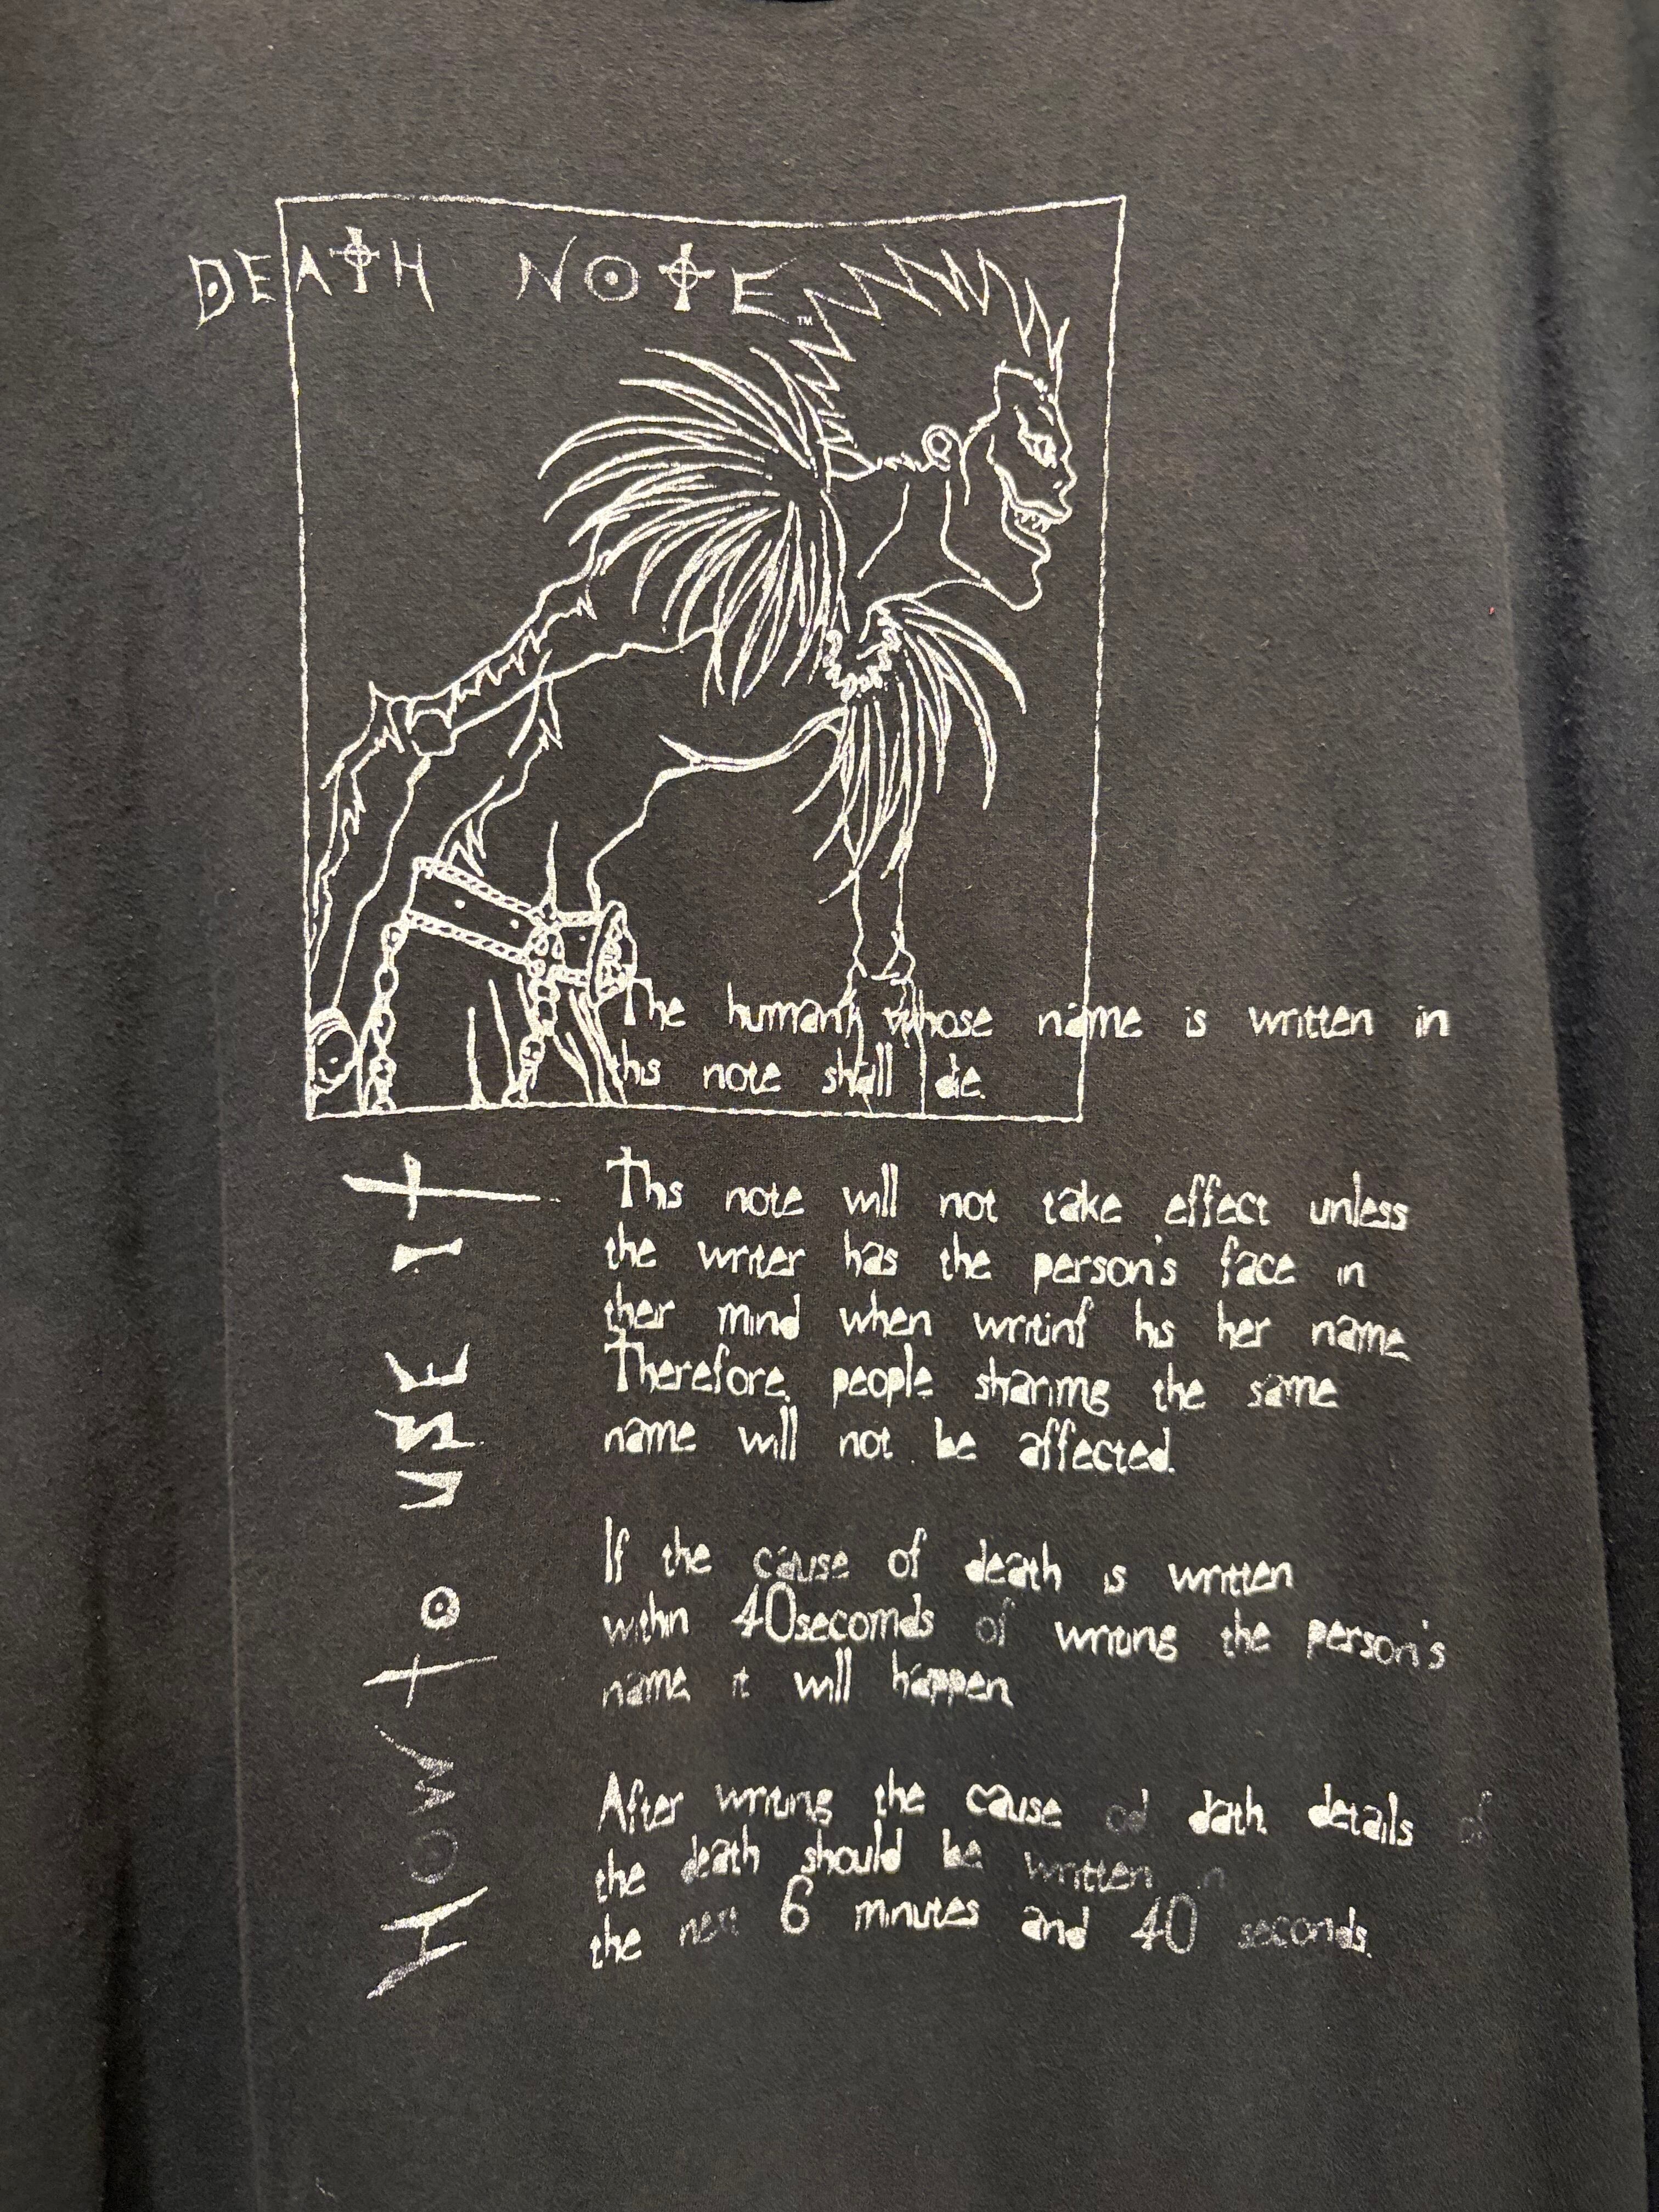 DEATH NOTE™
The human whose name is written in
this note shall die.
HOW to USE IT
This note will not take effect unless
the writer has the person's face in
ther mind when writinf his her name
Therefore, people sharimg the same
name will not be affected.
If the cause of death is written
within 40secomds of writing the person's
name it will happen
After writing the cause od dath details of
the death should be written in
the next 6 minutes and 40 seconds.